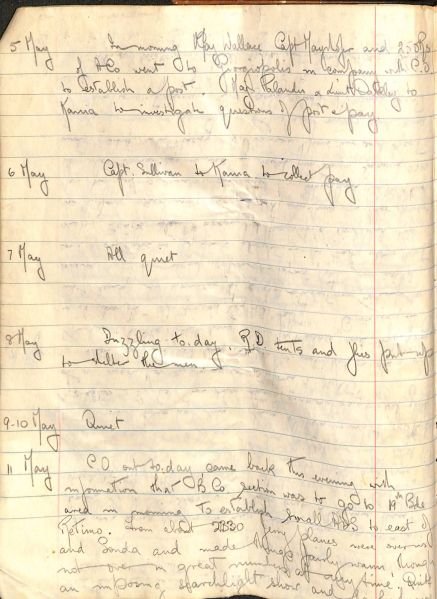 5 May In morning Maj Wallace Capt Mayhofer and 25 ORs
of HCo went to Georgiopolis in company with C.O.
to establish a post. Maj Palandri a Lieut to
Kania to investigate questions of post & pay.
6 May Capt. Sullivan to Kania to collect pay.
7 May All quiet
8 May Drizzling to-day. R.D. tents and flies put up
to shelter the men.
9-10 May Quiet
11 May C.O. out to-day came back this evening with
information that B Co. section was to go to 19th Bde
area in morning to establish small ADS to east of
Retimo. From about Jerry planes were over
and Suda and made things fairly warm though
not over in great numbers at any time. Quite
an imposing searchlight show and